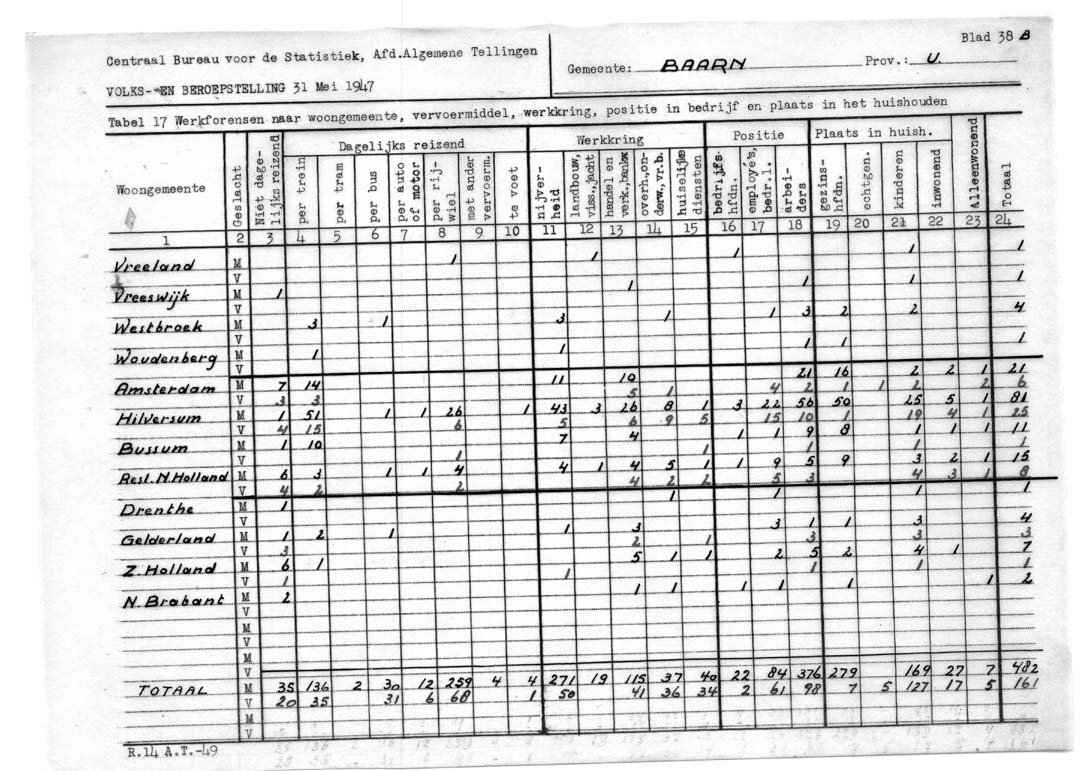 Blad 38 B
Centraal Bureau voor de Statistiek, Afd.Algemene Tellingen
Gemeente: BAARN Prov.: U.
VOLKS- EN BEROEPSTELLING 31 Mei 1947
Tabel 17 Werkforensen naar woongemeente, vervoermiddel, werkkring, positie in bedrijf en plaats in het huishouden
Woongemeente
Geslacht
Niet dage-
lijks reizend
Dagelijks reizend
per trein
per tram
per bus
per auto
of motor
per rij-
wiel
met ander
vervoerm.
te voet
Werkkring
nijver-
heid
landbouw,
viss.,jacht
handel en
verk.,bankw
overh.,on-
derw.,vr.b.
huiselijke
diensten
Positie
bedrijfs-
hfdn.
employé's,
bedr.l.
arbei-
ders
Plaats in huish.
gezins-
hfdn.
echtgen.
kinderen
inwonend
Alleenwonend
Totaal
1 2 3 4 5 6 7 8 9 10 11 12 13 14 15 16 17 18 19 20 21 22 23 24
Vreeland M 1 1 1 1 1
V
Vreeswijk M 1 1 1 1 1
V
Westbroek M 3 1 3 1 1 3 2 2 4
V
Woudenberg M 1 1 1 1 1
V
Amsterdam M 7 14 11 10 21 16 2 2 1 21
V 3 3 5 1 4 2 1 1 2 2 6
Hilversum M 1 51 1 1 26 1 43 3 26 8 1 3 22 56 50 25 5 1 81
V 4 15 6 5 6 9 5 15 10 1 19 4 1 25
Bussum M 1 10 7 4 1 1 9 8 1 1 1 11
V 1 1 1 1 1
Rest. N. Holland M 6 3 1 1 4 4 1 4 5 1 1 9 5 9 3 2 1 15
V 4 2 2 4 2 2 5 3 4 3 1 8
Drenthe M 1 1 1 1 1
V
Gelderland M 1 2 1 1 3 3 1 1 3 4
V 3 2 1 3 3 3
Z. Holland M 6 1 5 1 1 2 5 2 4 1 7
V 1 1 1 1 1
N. Brabant M 2 1 1 1 1 1 1 2
V
M
V
M
V
TOTAAL M 35 136 2 30 12 259 4 4 271 19 115 37 40 22 84 376 279 169 27 7 482
V 20 35 31 6 68 1 50 41 36 34 2 61 98 7 5 127 17 5 161
M
V
R.14 A.T.-49